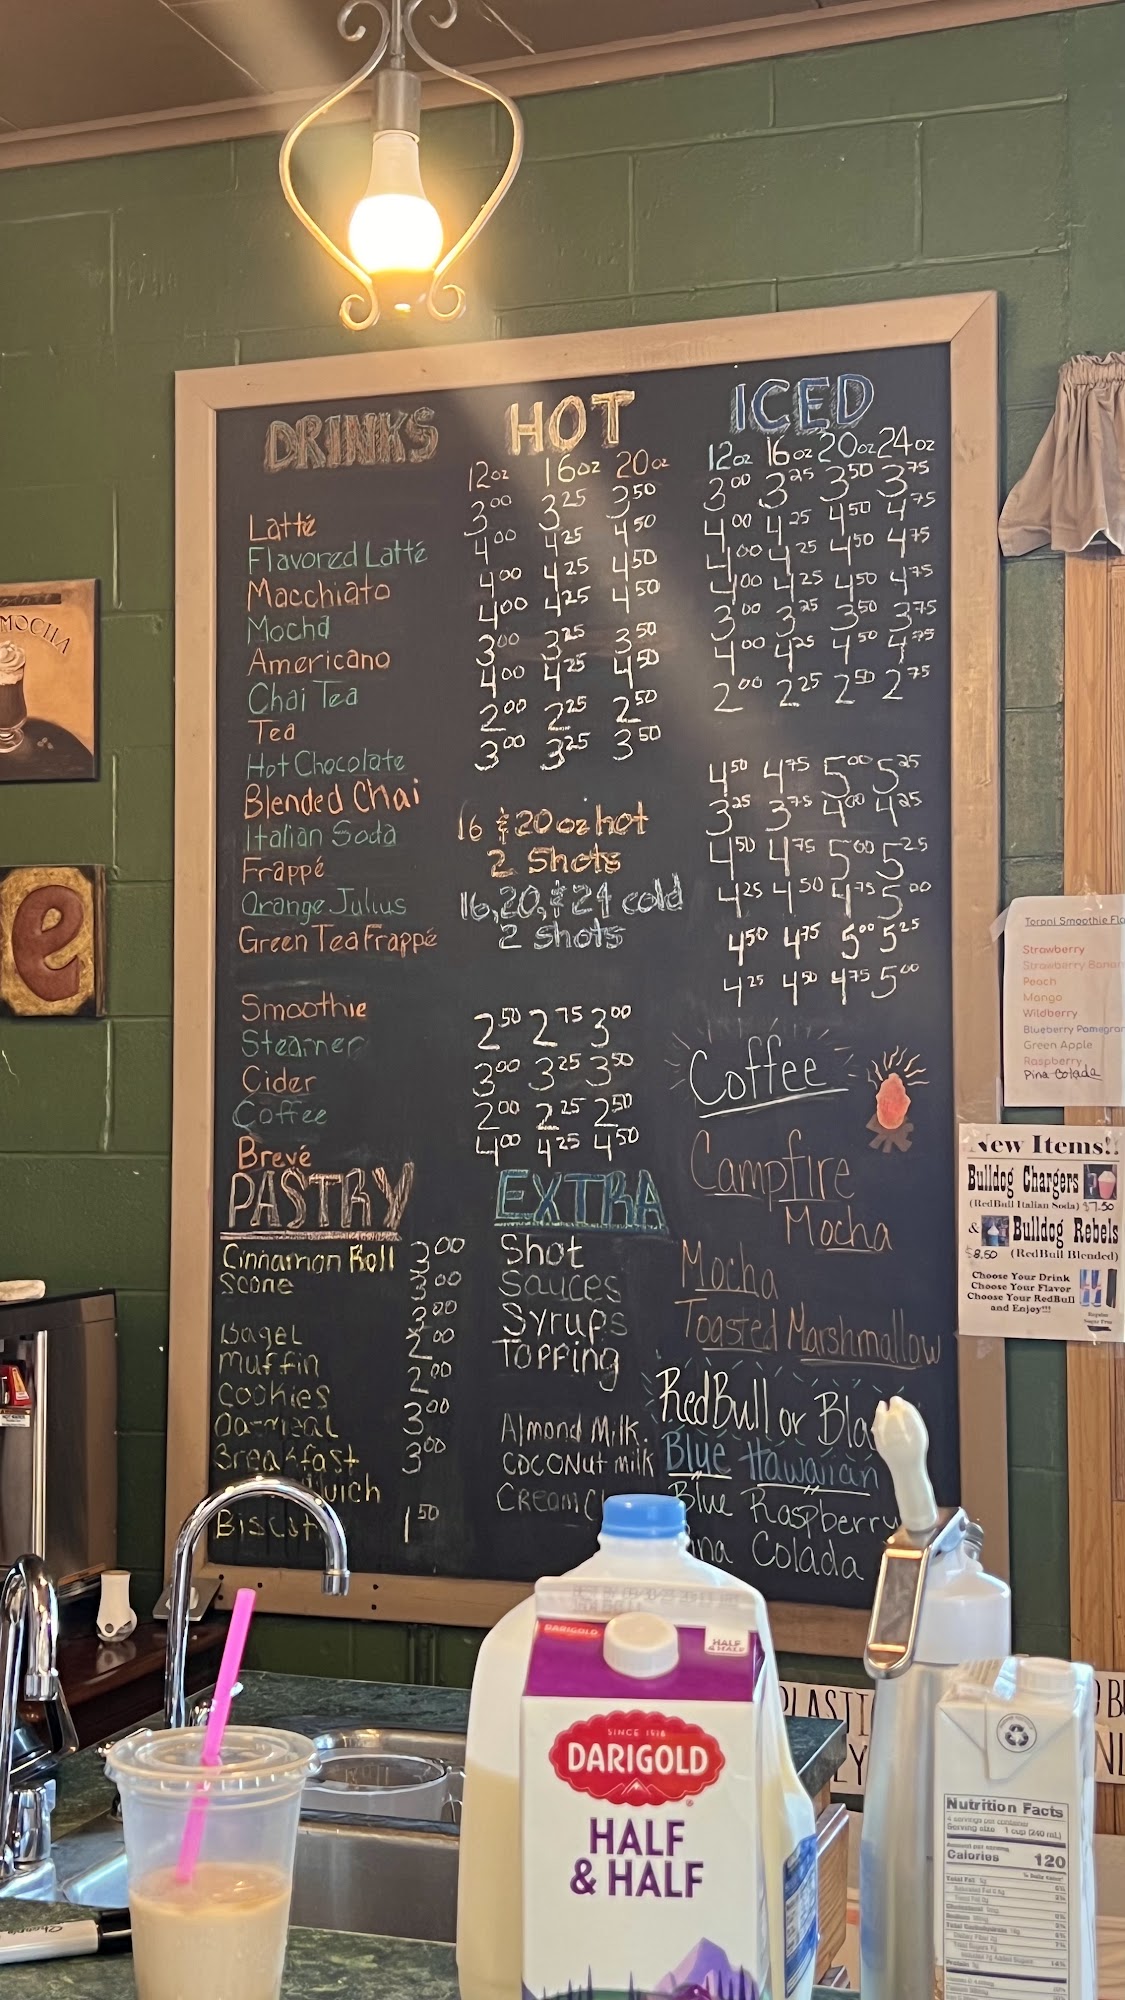 DRINKS HOT ICED
12oz 16oz 20oz 12oz 16oz 20oz 24oz
Latté 3.00 3.25 3.50 3.00 3.25 3.50 3.75
Flavored Latté 4.00 4.25 4.50 4.00 4.25 4.50 4.75
Macchiato 4.00 4.25 4.50 4.00 4.25 4.50 4.75
Mocha 4.00 4.25 4.50 4.00 4.25 4.50 4.75
Americano 3.00 3.25 3.50 3.00 3.25 3.50 3.75
Chai Tea 4.00 4.25 4.50 4.00 4.25 4.50 4.75
Tea 2.00 2.25 2.50 2.00 2.25 2.50 2.75
Hot Chocolate 3.00 3.25 3.50
Blended Chai 4.50 4.75 5.00 5.25
Italian Soda 3.25 3.75 4.00 4.25
Frappé 4.50 4.75 5.00 5.25
Orange Julius 4.25 4.50 4.75 5.00
Green Tea Frappé 4.50 4.75 5.00 5.25
16 & 20 oz hot
2 Shots
16, 20, & 24 cold
2 shots
Smoothie 4.25 4.50 4.75 5.00
Steamer 2.50 2.75 3.00
Cider 3.00 3.25 3.50
Coffee 2.00 2.25 2.50
Brevé 4.00 4.25 4.50
PASTRY
Cinnamon Roll 3.00
Scone 3.00
Bagel 3.00
Muffin 2.00
Cookies 2.00
Oatmeal 3.00
Breakfast 3.00
Biscot 1.50
EXTRA
Shot
Sauces
Syrups
Topping
Almond Milk.
COCONut milk
CREAM
Coffee
Campfire
Mocha
Mocha
Toasted Marshmallow
RedBull or Bla
Blue Hawaiian
Blue Raspberry
na Colada
MOCHA
e
Torani Smoothie Fla
Strawberry
Strawberry Banan
Peach
Mango
Wildberry
Blueberry Pomegran
Green Apple
Raspberry
Pina Colada
New Items!!
Bulldog Chargers
(RedBull Italian Soda) $7.50
& Bulldog Rebels
$8.50 (RedBull Blended)
Choose Your Drink
Choose Your Flavor
Choose Your RedBull
and Enjoy!!!
Regular
Sugar Free
DARIGOLD
HALF & HALF
SINCE 1918
DARIGOLD
HALF
& HALF
PLASTI
Nutrition Facts
4 servings per container
Serving size 1 cup (240 mL)
Amount per serving
Calories 120
% Daily Value*